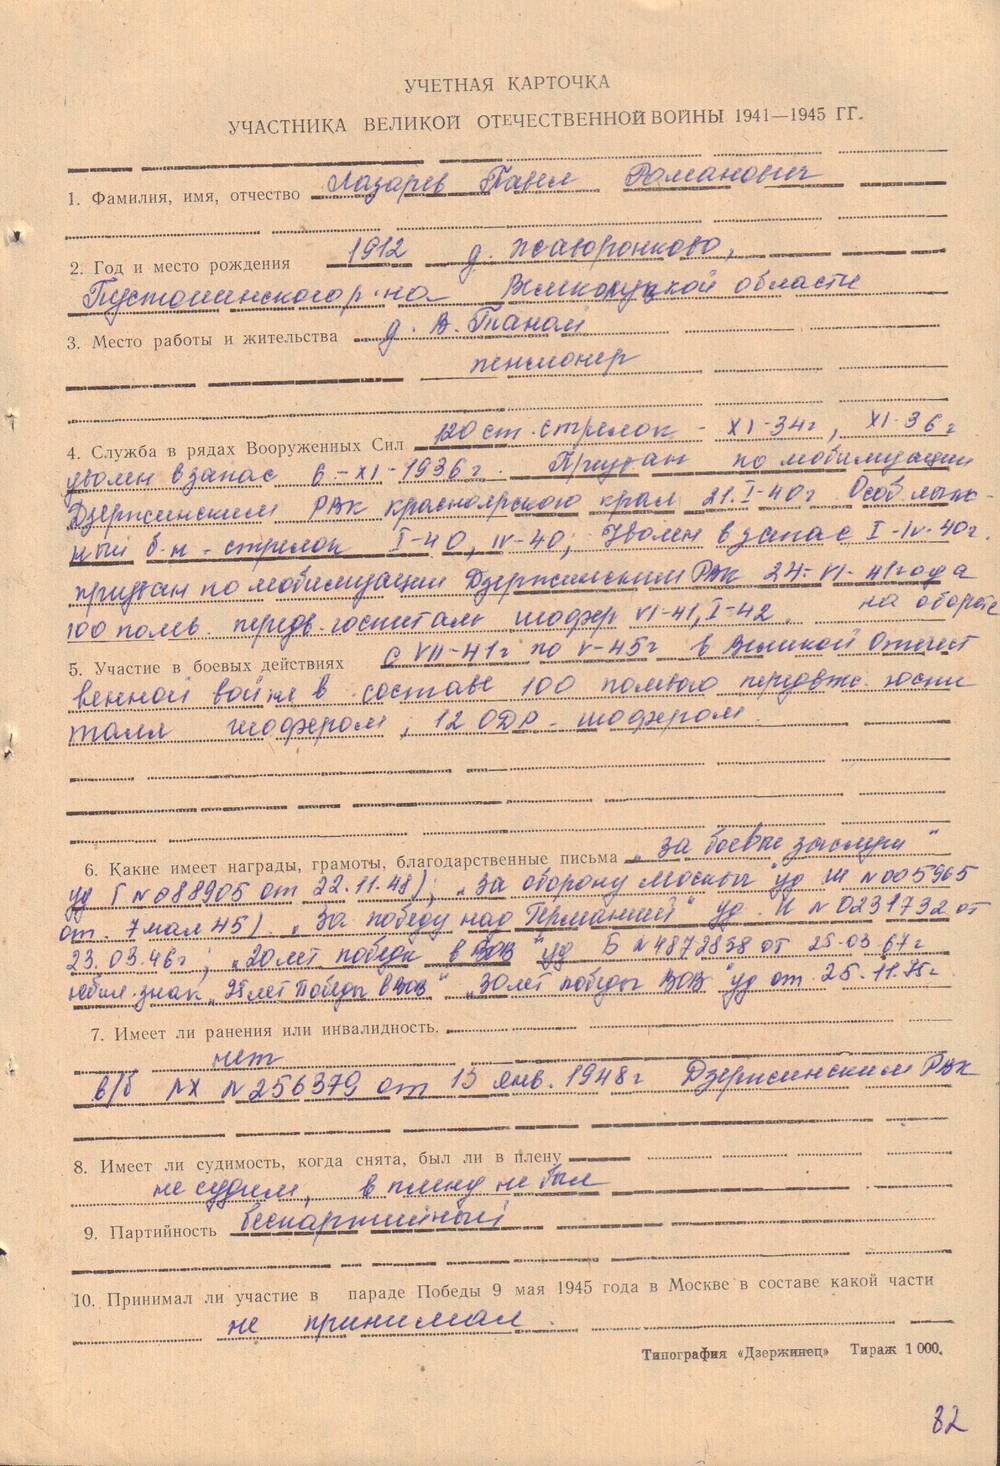 УЧЕТНАЯ КАРТОЧКА
УЧАСТНИКА ВЕЛИКОЙ ОТЕЧЕСТВЕННОЙ ВОЙНЫ 1941—1945 ГГ.
1. Фамилия, имя, отчество Лазарев Павел Романович
2. Год и место рождения 1912 д.
Пустошинского р-на Великолукской области
3. Место работы и жительства д. В. Танай
пенсионер
4. Служба в рядах Вооруженных Сил 120 ст. стрелок - XI-34г, XI-36г
уволен в запас 6-XI-1936г. Призван по мобилизации
Дзержинским РВК Красноярского края 21.I-40г. Особ. лыж-
ный б-н - стрелок I-40, IV-40; Уволен в запас I-IV-40г.
призван по мобилизации Дзержинским РВК 24-VI-41 года
100 полев. передв. госпиталь шофер VI-41, I-42. на обороте
5. Участие в боевых действиях с VII-41г по V-45г в Великой Отечест
венной войне в составе 100 передвиж. госпи
таля шофером, 12 ОДР - шофером.
6. Какие имеет награды, грамоты, благодарственные письма „за боевые заслуги"
уд Г №088905 от 22.11.48); „За оборону Москвы" уд Ш №005965
от. 7 мая 45). „За победу над Германией" уд. И №0231732 от
23.03.46г; „20 лет победы в ВОВ" уд Б №4872838 от 25.03.67г
юбил. знак „25 лет Победы в ВОВ" „30 лет победы ВОВ" уд от. 25.11.75г
7. Имеет ли ранения или инвалидность.
нет
в/б №256379 от 15 янв. 1948г Дзержинским РВК
8. Имеет ли судимость, когда снята, был ли в плену
не судим, в плену не был
9. Партийность беспартийный
10. Принимал ли участие в параде Победы 9 мая 1945 года в Москве в составе какой части
не принимал
Типография «Дзержинец» Тираж 1 000.
82